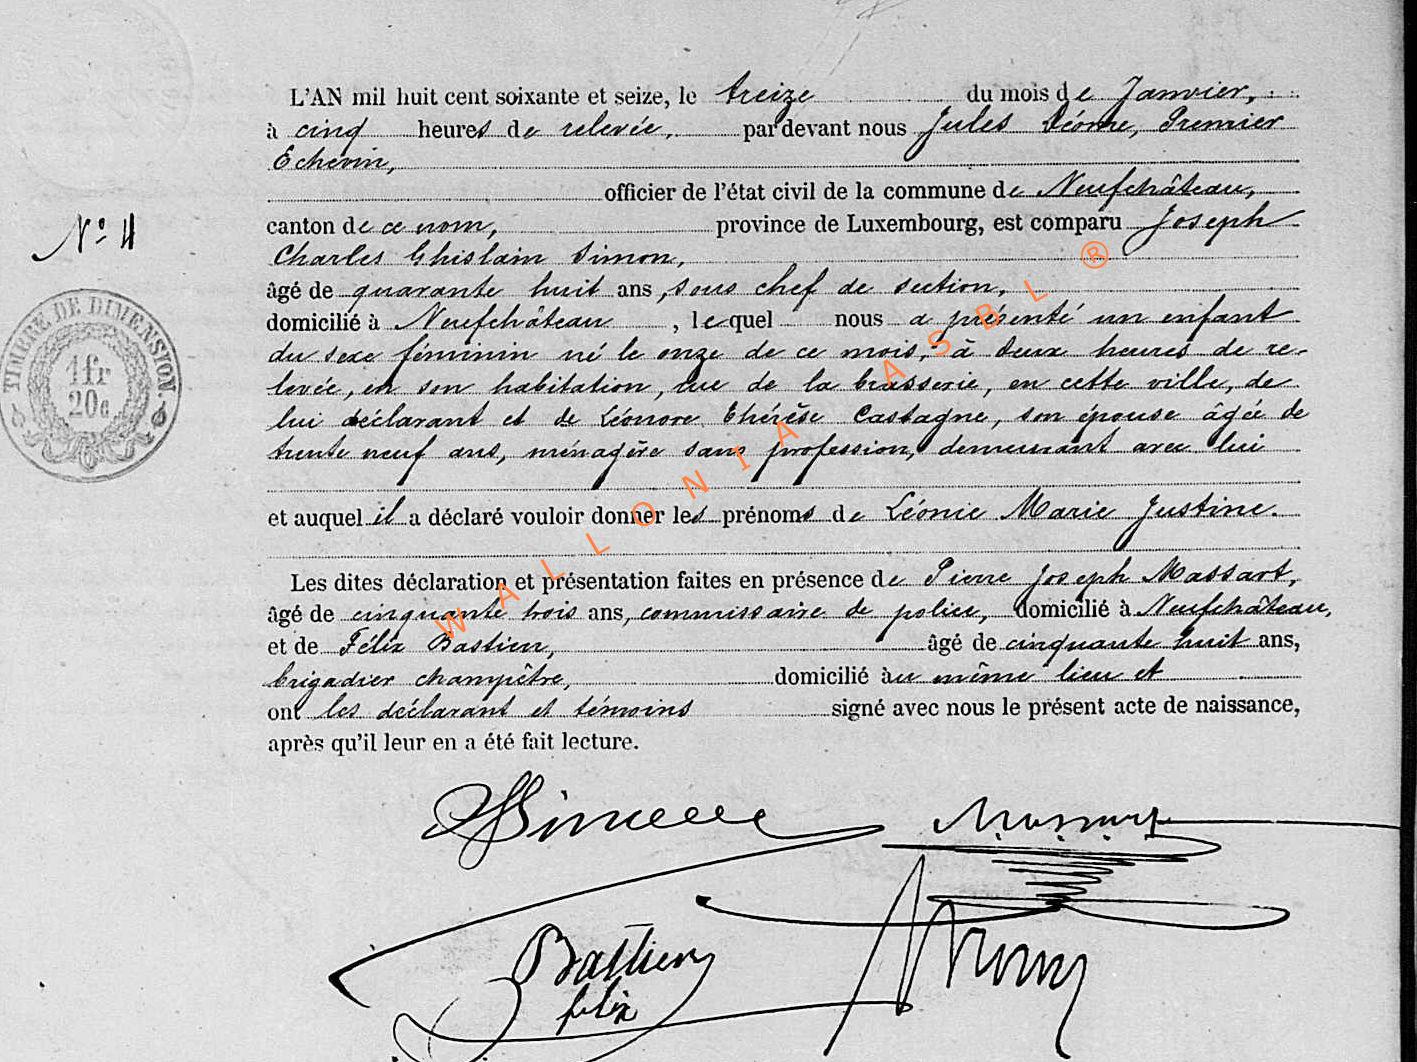 L'AN mil huit cent soixante et seize, le treize du mois de Janvier,
à cinq heures de relevée, par devant nous Jules Déome, Premier
Echevin,
officier de l'état civil de la commune de Neufchâteau,
canton de ce nom, province de Luxembourg, est comparu Joseph
N° 4
Charles Ghislain Simon,
âgé de quarante huit ans, sous chef de section,
domicilié à Neufchâteau, lequel nous a présenté un enfant
du sexe féminin né le onze de ce mois, à deux heures de re-
levée, en son habitation, rue de la brasserie, en cette ville, de
lui déclarant et de Léonore Thérèse Castagne, son épouse âgée de
trente neuf ans, ménagère sans profession, demeurant avec lui
et auquel il a déclaré vouloir donner les prénoms de Léonie Marie Justine.
Les dites déclaration et présentation faites en présence de Pierre Joseph Massart,
âgé de cinquante trois ans, commissaire de police, domicilié à Neufchâteau,
et de Félix Bastien, âgé de cinquante huit ans,
brigadier champêtre, domicilié au même lieu et
ont les déclarant et témoins signé avec nous le présent acte de naissance,
après qu'il leur en a été fait lecture.
TIMBRE DE DIMENSION
1fr
20c
WALLONIA ASBL ®
Simon
Massart
Bastien
felix